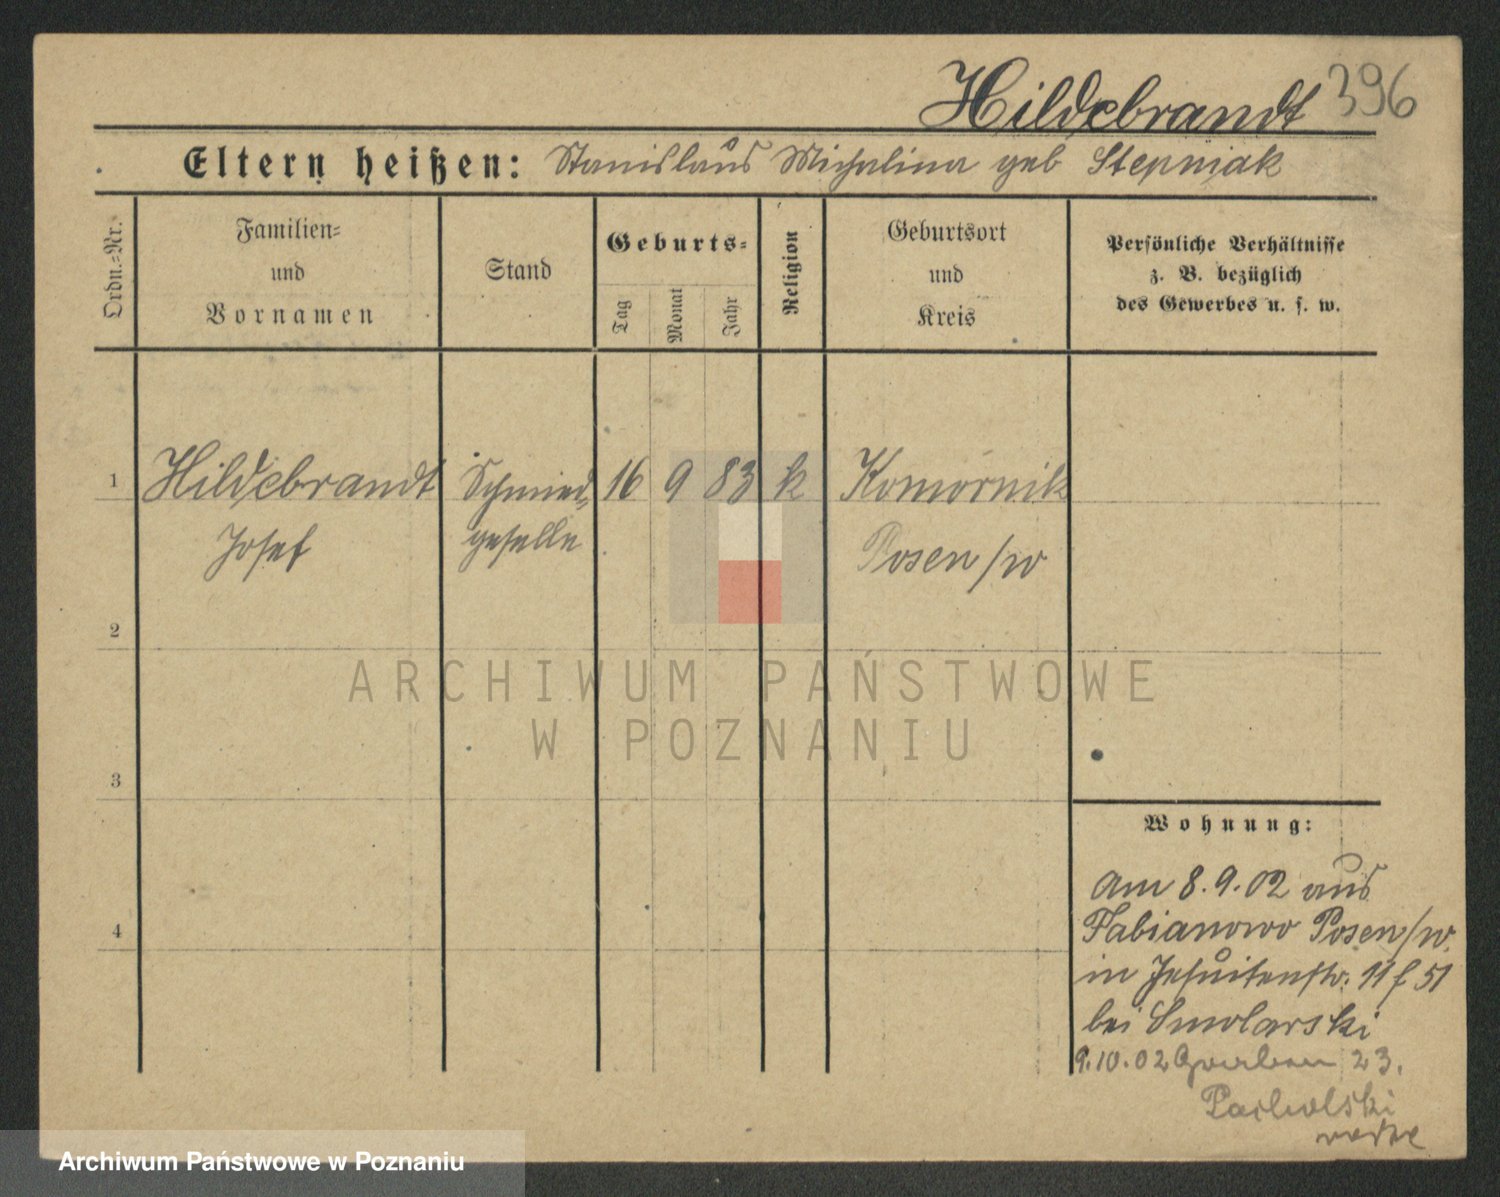 Hildebrandt 396
Eltern heißen: Stanislaus Michalina geb Stepniak
Ordn.=Nr.
Familien=
und
Vornamen
Stand
Geburts=
Tag
Monat
Jahr
Religion
Geburtsort
und
Kreis
Persönliche Verhältnisse
z. B. bezüglich
des Gewerbes u. s. w.
1 Hildebrandt Schmied 16 9 83 k Komornik
Josef geselle Posen/w
2
ARCHIWUM PAŃSTWOWE
W POZNANIU
3
Wohnung:
am 8.9.02 aus
4
Fabianowo Posen/w
in Jesuitenstr. 11 f 51
bei Smolarski
9.10.02 Graben 23.
Archiwum Państwowe w Poznaniu